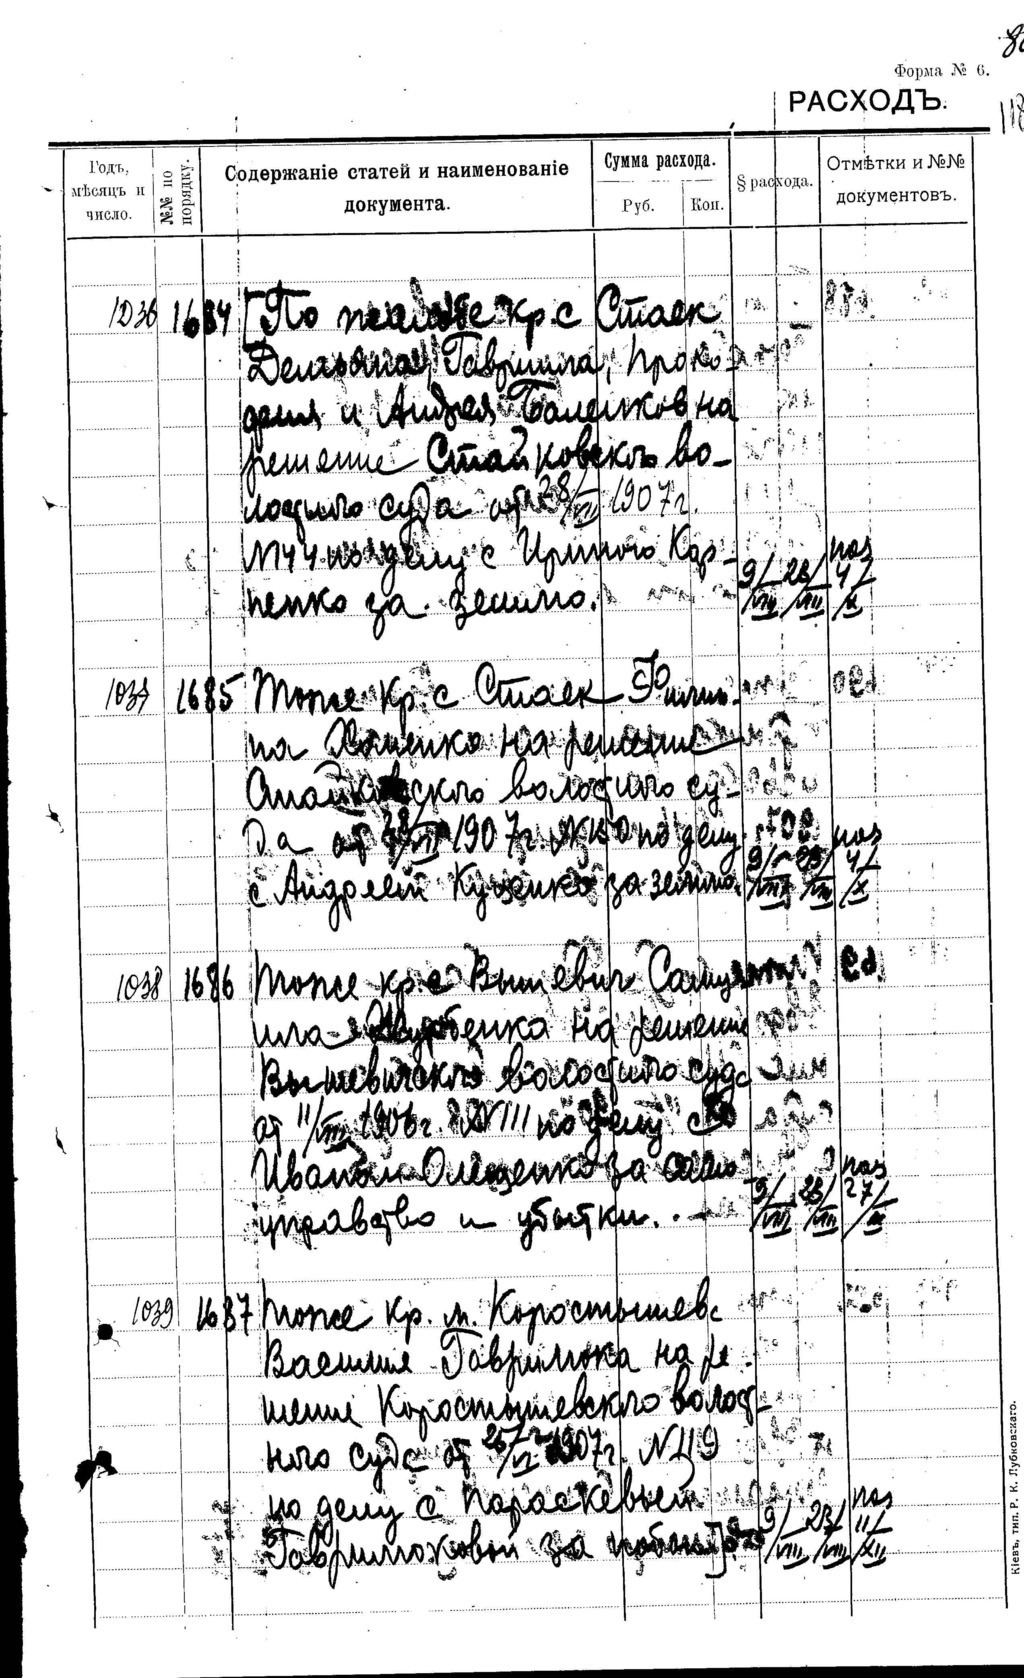 Форма № 6.
РАСХОДЪ.
Годъ, мѣсяцъ и число.
№№ по порядку.
Содержаніе статей и наименованіе документа.
Сумма расхода.
Руб.
Коп.
§ расхода.
Отмѣтки и №№ документовъ.
1036 1684 По жалобе кр. с Стаек
Демьяна, Гавриила, Проко-
фия и Андрея на
решение Стайковского во-
лостного суда от 28/VII 1907 г.
N 44 по делу с Ириною Кар-
пенко за землю. 9/VIII 28/VIII 4/X
1037 1685 Тоже кр. с Стаек Филип-
па на решение
Стайковского волостного су-
да от 28/VII 1907 г. по делу
с Андреем Куценко за землю. 9/VIII 28/VIII 4/X
1038 1686 Тоже кр. с Вышевич
на решение
Вышевичского волостного суда
от 11/VIII 1906 г. N 111 по делу с
Иваном Олещенко за само-
управство и убытки. 9/VIII 28/VIII 27/IX
1039 1687 Тоже кр. м. Коростышева
Василия Гаврилюка на ре-
шение Коростышевского волост-
ного суда от 1907 г. N 119
по делу с Параскевьей
Гаврилюковой за 9/VIII 28/VIII 11/XII
Кіевъ, тип. Р. К. Лубковскаго.